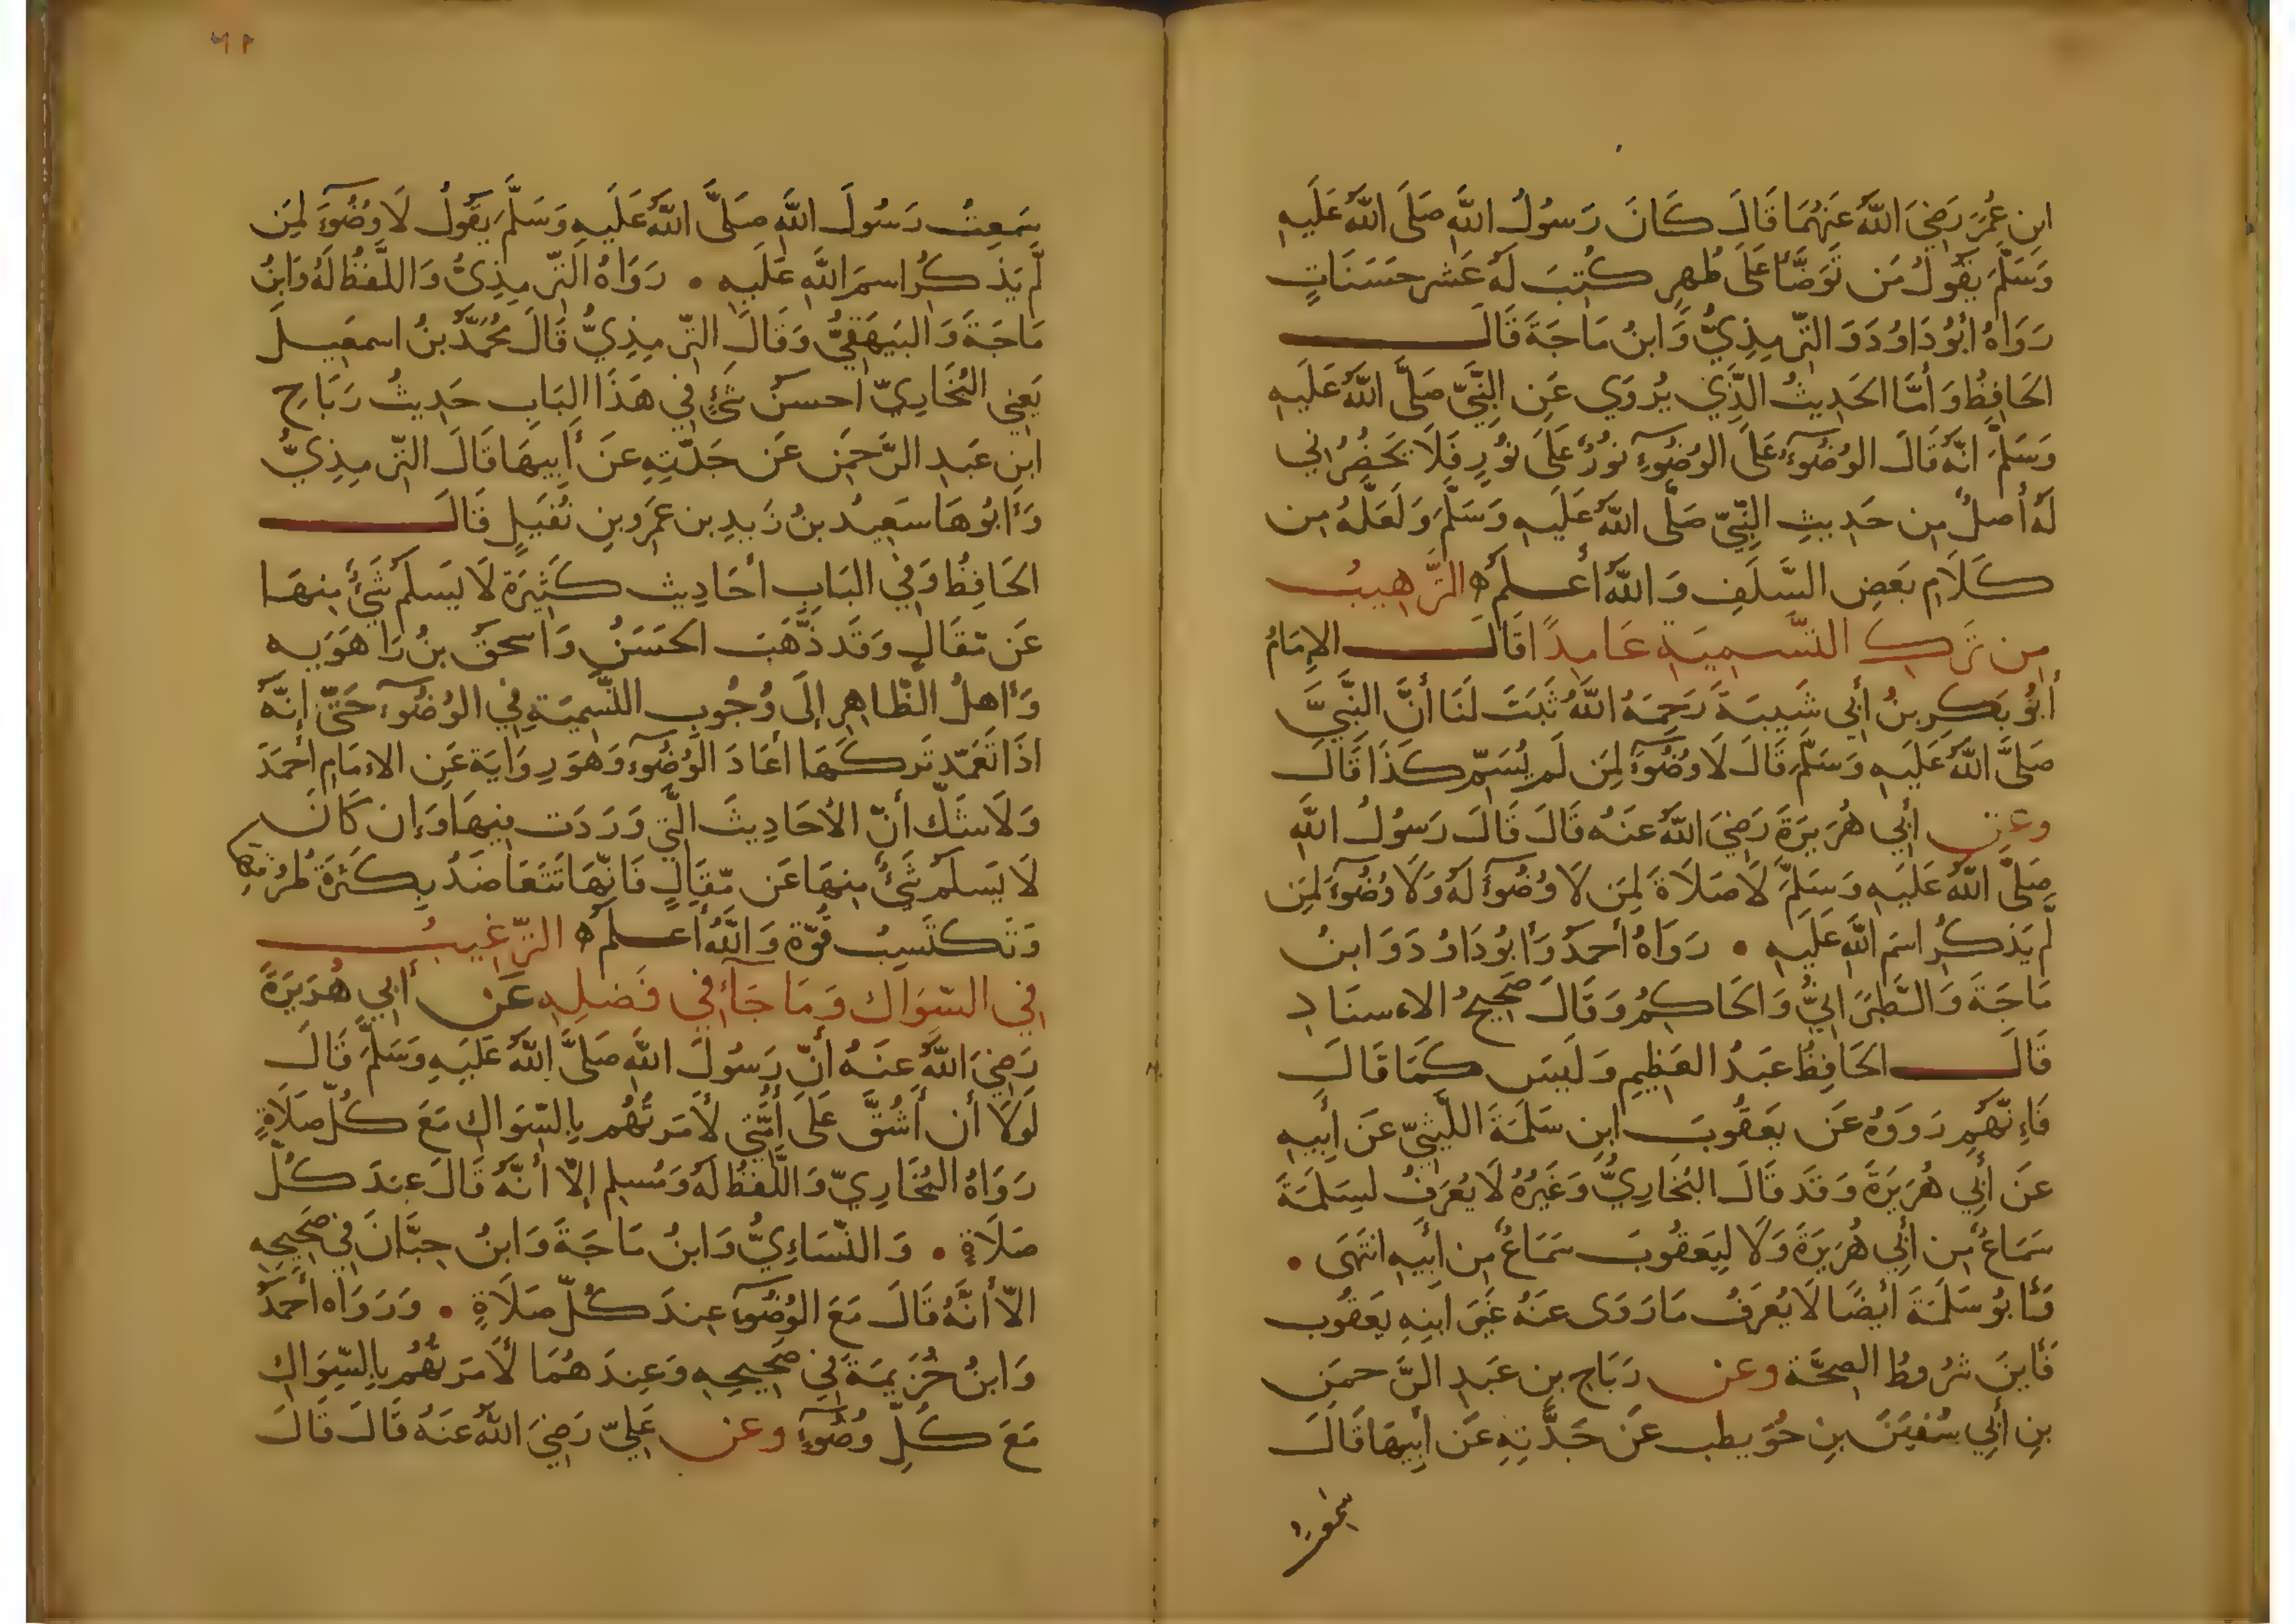 ابنِ عُمَرَ رَضِيَ اللَّهُ عَنهُمَا قَالَ كَانَ رَسُولُ اللَّهِ صَلَّى اللَّهُ عَلَيهِ
وَسَلَّمَ يَقُولُ مَن تَوَضَّأَ عَلَى طُهرٍ كُتِبَ لَهُ عَشر حَسَنَاتٍ
رَوَاهُ أبُو دَاوُدَ وَالتِّرمِذِيُّ وَابنُ مَاجَةَ قَالَ
الحَافِظُ وَأَمَّا الحَدِيثُ الَّذِي يُروَي عَنِ النَّبِيِّ صَلَّى اللَّهُ عَلَيهِ
وَسَلَّمَ انَّهُ قَالَ الوُضُوءُ عَلَى الوُضُوءِ نُورٌ عَلَى نُورٍ فَلَا يَحضُرُنِي
لَهُ أَصلٌ مِن حَدِيثِ النَّبِيِّ صَلَّى اللَّهُ عَلَيهِ وَسَلَّمَ وَلَعَلَّهُ مِن
كَلَامِ بَعضِ السَّلَفِ وَاللَّهُ أَعلَمُ ه التَّرهِيبُ
مِن تَركِ التَّسمِيَةِ عَامِدًا قَالَ الإِمَامُ
أَبُو بَكرِ بنُ أَبِي شَيبَةَ رَحِمَهُ اللَّهُ ثَبَتَ لَنَا أَنَّ النَّبِيَّ
صَلَّى اللَّهُ عَلَيهِ وَسَلَّمَ قَالَ لَا وُضُوءَ لِمَن لَم يُسَمِّ كَذَا قَالَ
وعَن أَبِي هُرَيرَةَ رَضِيَ اللَّهُ عَنهُ قَالَ قَالَ رَسُولُ اللَّهِ
صَلَّى اللَّهُ عَلَيهِ وَسَلَّمَ لَا صَلَاةَ لِمَن لَا وُضُوءَ لَهُ وَلَا وُضُوءَ لِمَن
لَّم يَذكُرِ اسمَ اللَّهِ عَلَيهِ • رَوَاهُ أَحمَدُ وَأَبُو دَاوُدَ وَابنُ
مَاجَةَ وَالطَّبَرَانِيُّ وَالحَاكِمُ وَقَالَ صَحِيحُ الاءسنَادِ
قَالَ الحَافِظُ عَبدُ العَظِيمِ وَلَيسَ كَمَا قَالَ
فَاءِنَّهُم رَوَوهُ عَن يَعقُوبَ ابنِ سَلَمَةَ اللَّيثِيِّ عَن أَبِيهِ
عَن أَبِي هُرَيرَةَ وَقَد قَالَ البُخَارِيُّ وَغَيرُهُ لَا يُعرَفُ لِسَلَمَةَ
سَمَاعٌ مِن أَبِي هُرَيرَةَ وَلَا لِيَعقُوبَ سَمَاعٌ مِن أَبِيهِ انتَهَى •
وَأَبُو سَلَمَةَ أَيضًا لَا يُعرَفُ مَا رَوَى عَنهُ غَيرَ ابنِهِ يَعقُوب
فَأَينَ شُرُوطُ الصِحَّة وعن رَبَاحِ بنِ عَبدِ الرَّحمَنِ
بنِ أَبِي سُفيَنَ بنِ حُوَيطِب عَن جَدَّتِهِ عَن أَبِيهَا قَالَ
سَمِعتُ
٦٢
سَمِعتُ رَسُولَ اللَّهِ صَلَّى اللَّهُ عَلَيهِ وَسَلَّمَ يَقُولُ لَا وُضُوءَ لِمَن
لَّم يَذكُرِ اسمَ اللَّهِ عَلَيهِ • رَوَاهُ التِّرمِذِيُّ وَاللَّفظُ لَهُ وَابنُ
مَاجَةَ وَالبَيهَقِيُّ وَقَالَ التِّرمِذِيُّ قَالَ مُحَمَّدُ بنُ اسمَعِيلَ
يَعنِي البُخَارِيِّ احسَنُ شَيءٍ فِي هَذَا البَابِ حَدِيثُ رَبَاحِ
ابنِ عَبدِ الرَّحمَنِ عَن جَدَّتِهِ عَن أَبِيهَا قَالَ التِّرمِذِيُّ
وَأَبُوهَا سَعِيدُ بنُ زَيدِ بنِ عَمَرِو بنِ نُفَيلٍ قَالَ
الحَافِظُ وَفِي البَابِ أَحَادِيث كَثِيرَة لَا يَسلَمُ شَيءٌ مِنهَا
عَن مَّقَالٍ وَقَد ذَّهَبَ الحَسَنُ وَاسحَقُ بنُ رَاهَوَيه
وَأَهلُ الظَّاهِرِ إِلَى وُجُوبِ التَّسمِيَةِ فِي الوُضُوءِ حَتَّى إِنَّهُ
اذَا تَعَمَّد تَركَهَا أَعَادَ الوُضُوءَ وَهوَ رِوَايَة عَنِ الاءمَامِ أَحمَدَ
وَلَا شَكَّ أَنَّ الأَحَادِيثَ الَّتِي وَرَدَت فِيهَا وَإِن كَانَ
لَا يَسلَمُ شَيءٌ مِنهَا عَن مَّقَالٍ فَانَّهَا تَتَعَاضَدُ بِكَثرَةِ طُرُقِهَا
وَتَكتَسِبُ قُوَّة وَاللَّهُ أَعلَمُ ه التَّرغِيبُ
فِي السِّوَاكِ وَمَا جَآءَ فِي فَضلِهِ عَن أَبِي هُرَيرَةَ
رَضِيَ اللَّهُ عَنهُ أَنَّ رَسُولَ اللَّهِ صَلَّى اللَّهُ عَلَيهِ وَسَلَّمَ قَالَ
لَولَا أَن أَشُقَّ عَلَى أُمَّتِي لَأَمَرتُهُم بِالسِّوَاكِ مَعَ كُلِّ صَلَاةٍ
رَوَاهُ البُخَارِيّ وَاللَّفظُ لَهُ وَمُسلِم إِلَّا أَنَّهُ قَالَ عِندَ كُلِّ
صَلَاةٍ • وَالنَّسَاءِيُّ وَابنُ مَاجَةَ وَابنُ حِبَّانَ فِي صَحِيحِهِ
الَّا أَنَّهُ قَالَ مَعَ الوُضُوءِ عِندَ كُلِّ صَلَاةٍ • وَرَوَاه أَحمَدُ
وَابنُ خُزَيمَةَ فِي صَحِيحِهِ وَعِندَهُمَا لَأَمَرتُهُم بِالسِّوَاكِ
مَعَ كُلِّ وُضُوءٍ وعن عَلِيٍّ رَضِيَ اللَّهُ عَنهُ قَالَ قَالَ